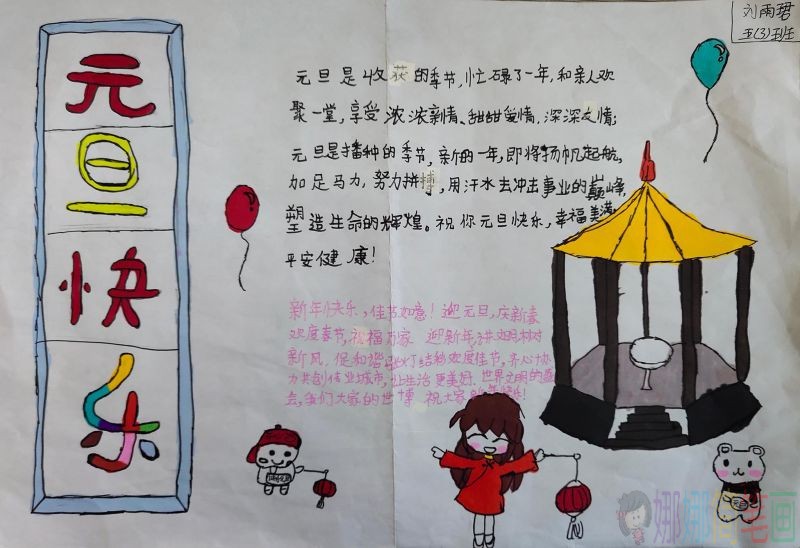 刘雨珺
五(3)班
元
旦
快
乐
元旦是收获的季节,忙碌了一年,和亲人欢
聚一堂,享受浓浓亲情、甜甜爱情,深深友情;
元旦是播种的季节,新的一年,即将扬帆起航,
加足马力,努力拼搏,用汗水去冲击事业的巅峰,
塑造生命的辉煌。祝你元旦快乐,幸福美满,
平安健康!
新年快乐,佳节如意!迎元旦,庆新春
欢度春节,祝福万家 迎新年,讲文明树
新风,促和谐 张灯结彩欢度佳节,齐心协
力共创伟业城市,让生活更美好,世界文明的盛
会,我们大家的世博 祝大家新年快乐!
娜娜 笔画